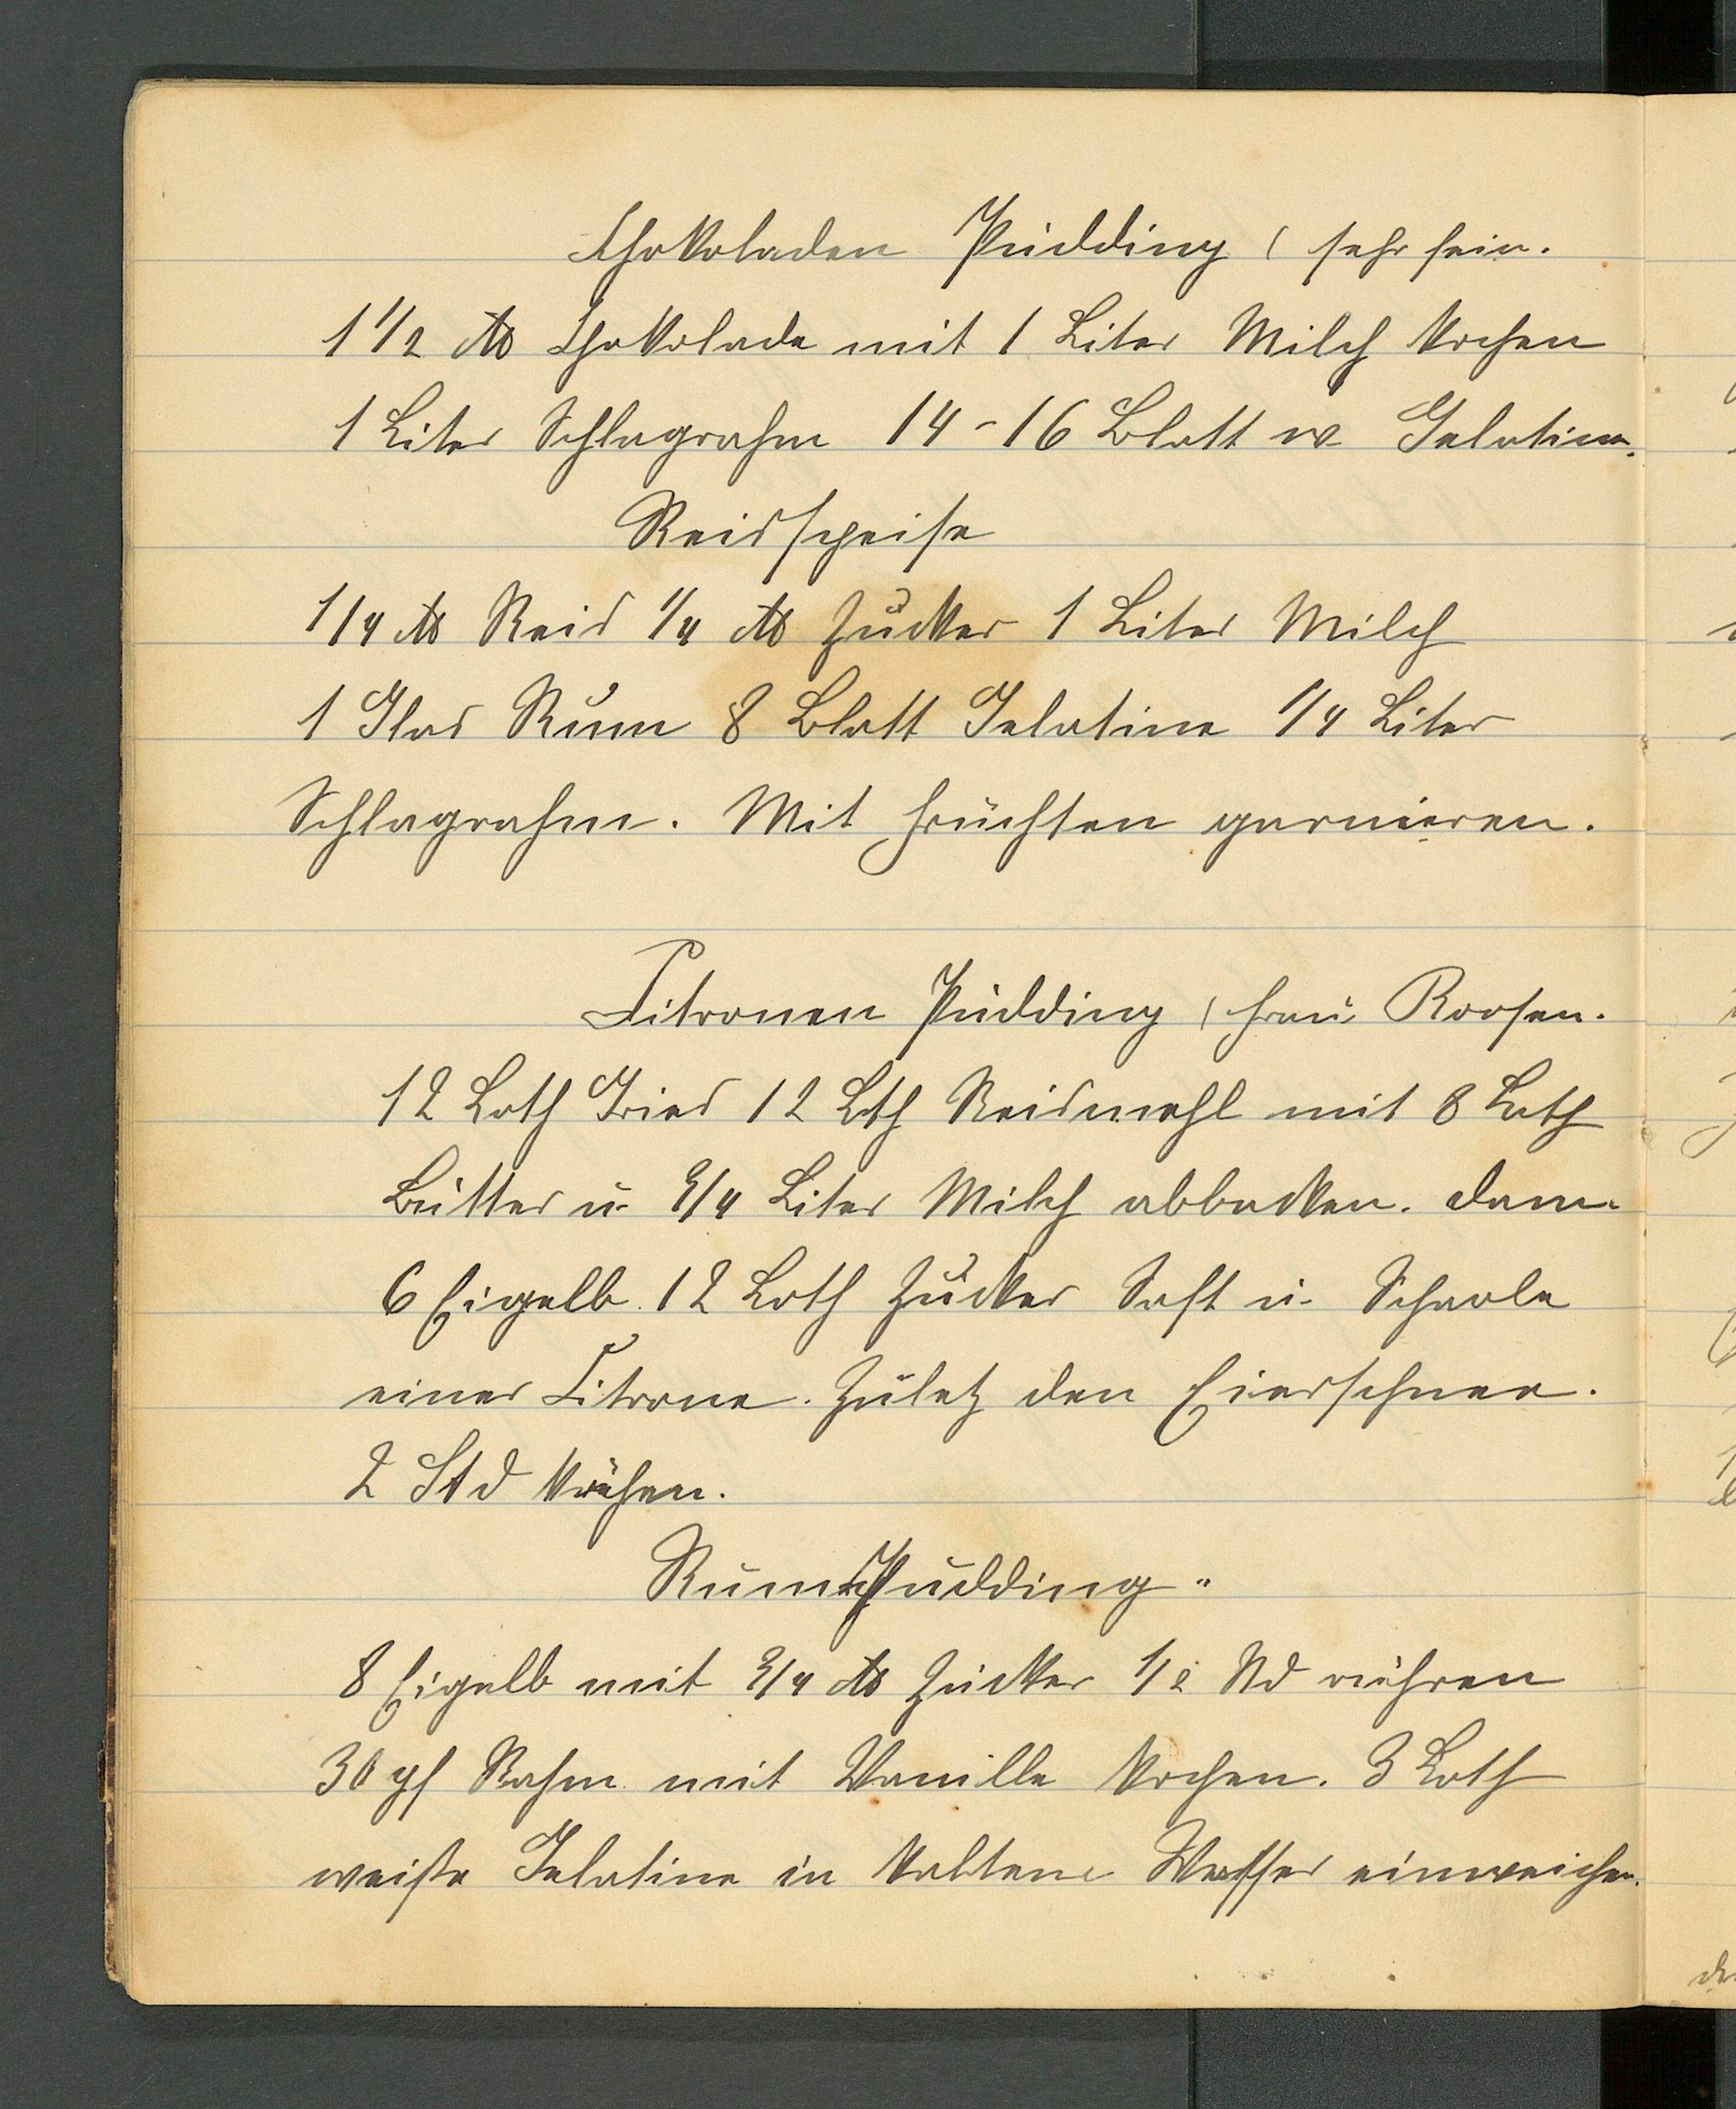 Chokoladen Pudding ( sehr fein.
1 1/2 ℔ Chokolade mit 1 Liter Milch kochen
1 Liter Schlagrahm 14-16 Blatt w Gelatine.
Reisspeise
1/4 ℔ Reis 1/4 ℔ Zucker 1 Liter Milch
1 Glas Rum 8 Blatt Gelatine 1/4 Liter
Schlagrahm. Mit Früchten garnieren.
Citronen Pudding ( Frau Roosen.
12 Loth Gries 12 Lth Reismehl mit 8 Loth
Butter u. 3/4 Liter Milch abbacken. dann
6 Eigelb 12 Loth Zucker Saft u. Schaale
einer Citrone. Zuletz den Eierschnee.
2 Std kochen.
Rum Pudding
8 Eigelb mit 3/4 ℔ Zucker 1/2 Std rühren
30 pf Rahm mit Vanille kochen. 3 Loth
weiße Gelatine in kaltem Wasser einweichen.